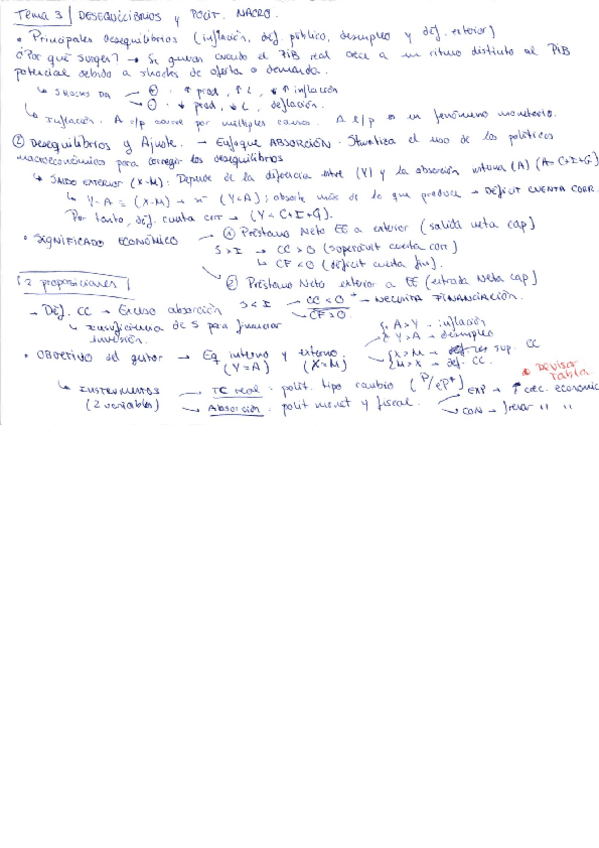 Tema 3 | DESEQUILIBRIOS y POLIT. MACRO.
• Principales desequilibrios (inflación, déf. público, desempleo y déf. exterior)
¿Por qué surgen? → Se generan cuando el PIB real crece a un ritmo distinto al PIB
potencial debido a shocks de oferta o demanda.
↳ SHOCKS DA → ⊕ · ↑ prod, ↑ L, ↑ inflación
→ ⊖ · ↓ prod, ↓ L, deflación.
↳ Inflación. A c/p ocurre por múltiples causas. A l/p es un fenómeno monetario.
② Desequilibrios y Ajuste. → Enfoque ABSORCIÓN. el uso de las políticas
macroeconómicas para corregir los desequilibrios
↳ SALDO EXTERIOR (X-M): Depende de la diferencia entre (Y) y la absorción interna (A) (A=C+I+G)
↳ Y-A = (X-M) → (Y<A); absorbe más de lo que produce → DÉFICIT CUENTA CORR.
Por tanto, déf. cuenta corr → (Y < C+I+G).
• SIGNIFICADO ECONÓMICO → ① Préstamo Neto EE a exterior (salida neta cap)
S > I → CC > 0 (superávit cuenta corr)
↳ CF < 0 (déficit cuenta fin).
→ ② Préstamo Neto exterior a EE (entrada Neta cap)
2 proposiciones
S < I → CC < 0 → NECESITA FINANCIACIÓN.
↳ CF > 0.
→ Déf. CC → Exceso absorción
↳ Insuficiencia de S para financiar
inversión.
{ A>Y - inflación
{ Y>A - desempleo
• OBJETIVO del gestor → Eq interno y externo.
(Y=A) (X=M)
{ X>M → sup. CC
{ M>X → déf. CC.
• Revisar
Tabla
↳ INSTRUMENTOS → TC real: polít. tipo cambio (P/eP*)
(2 variables) → Absorción: polít monet y fiscal.
EXP → ↑ crec. económic
CON → frenar " "